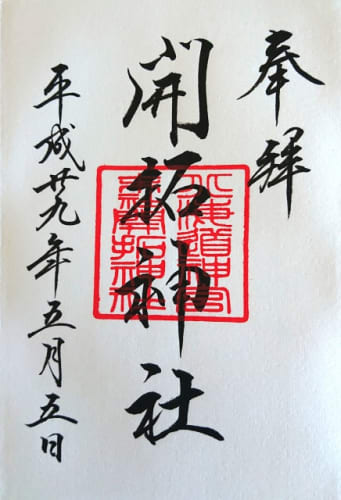 奉拝
開拓神社
北海道神宮
開拓神社
平成廿九年五月五日